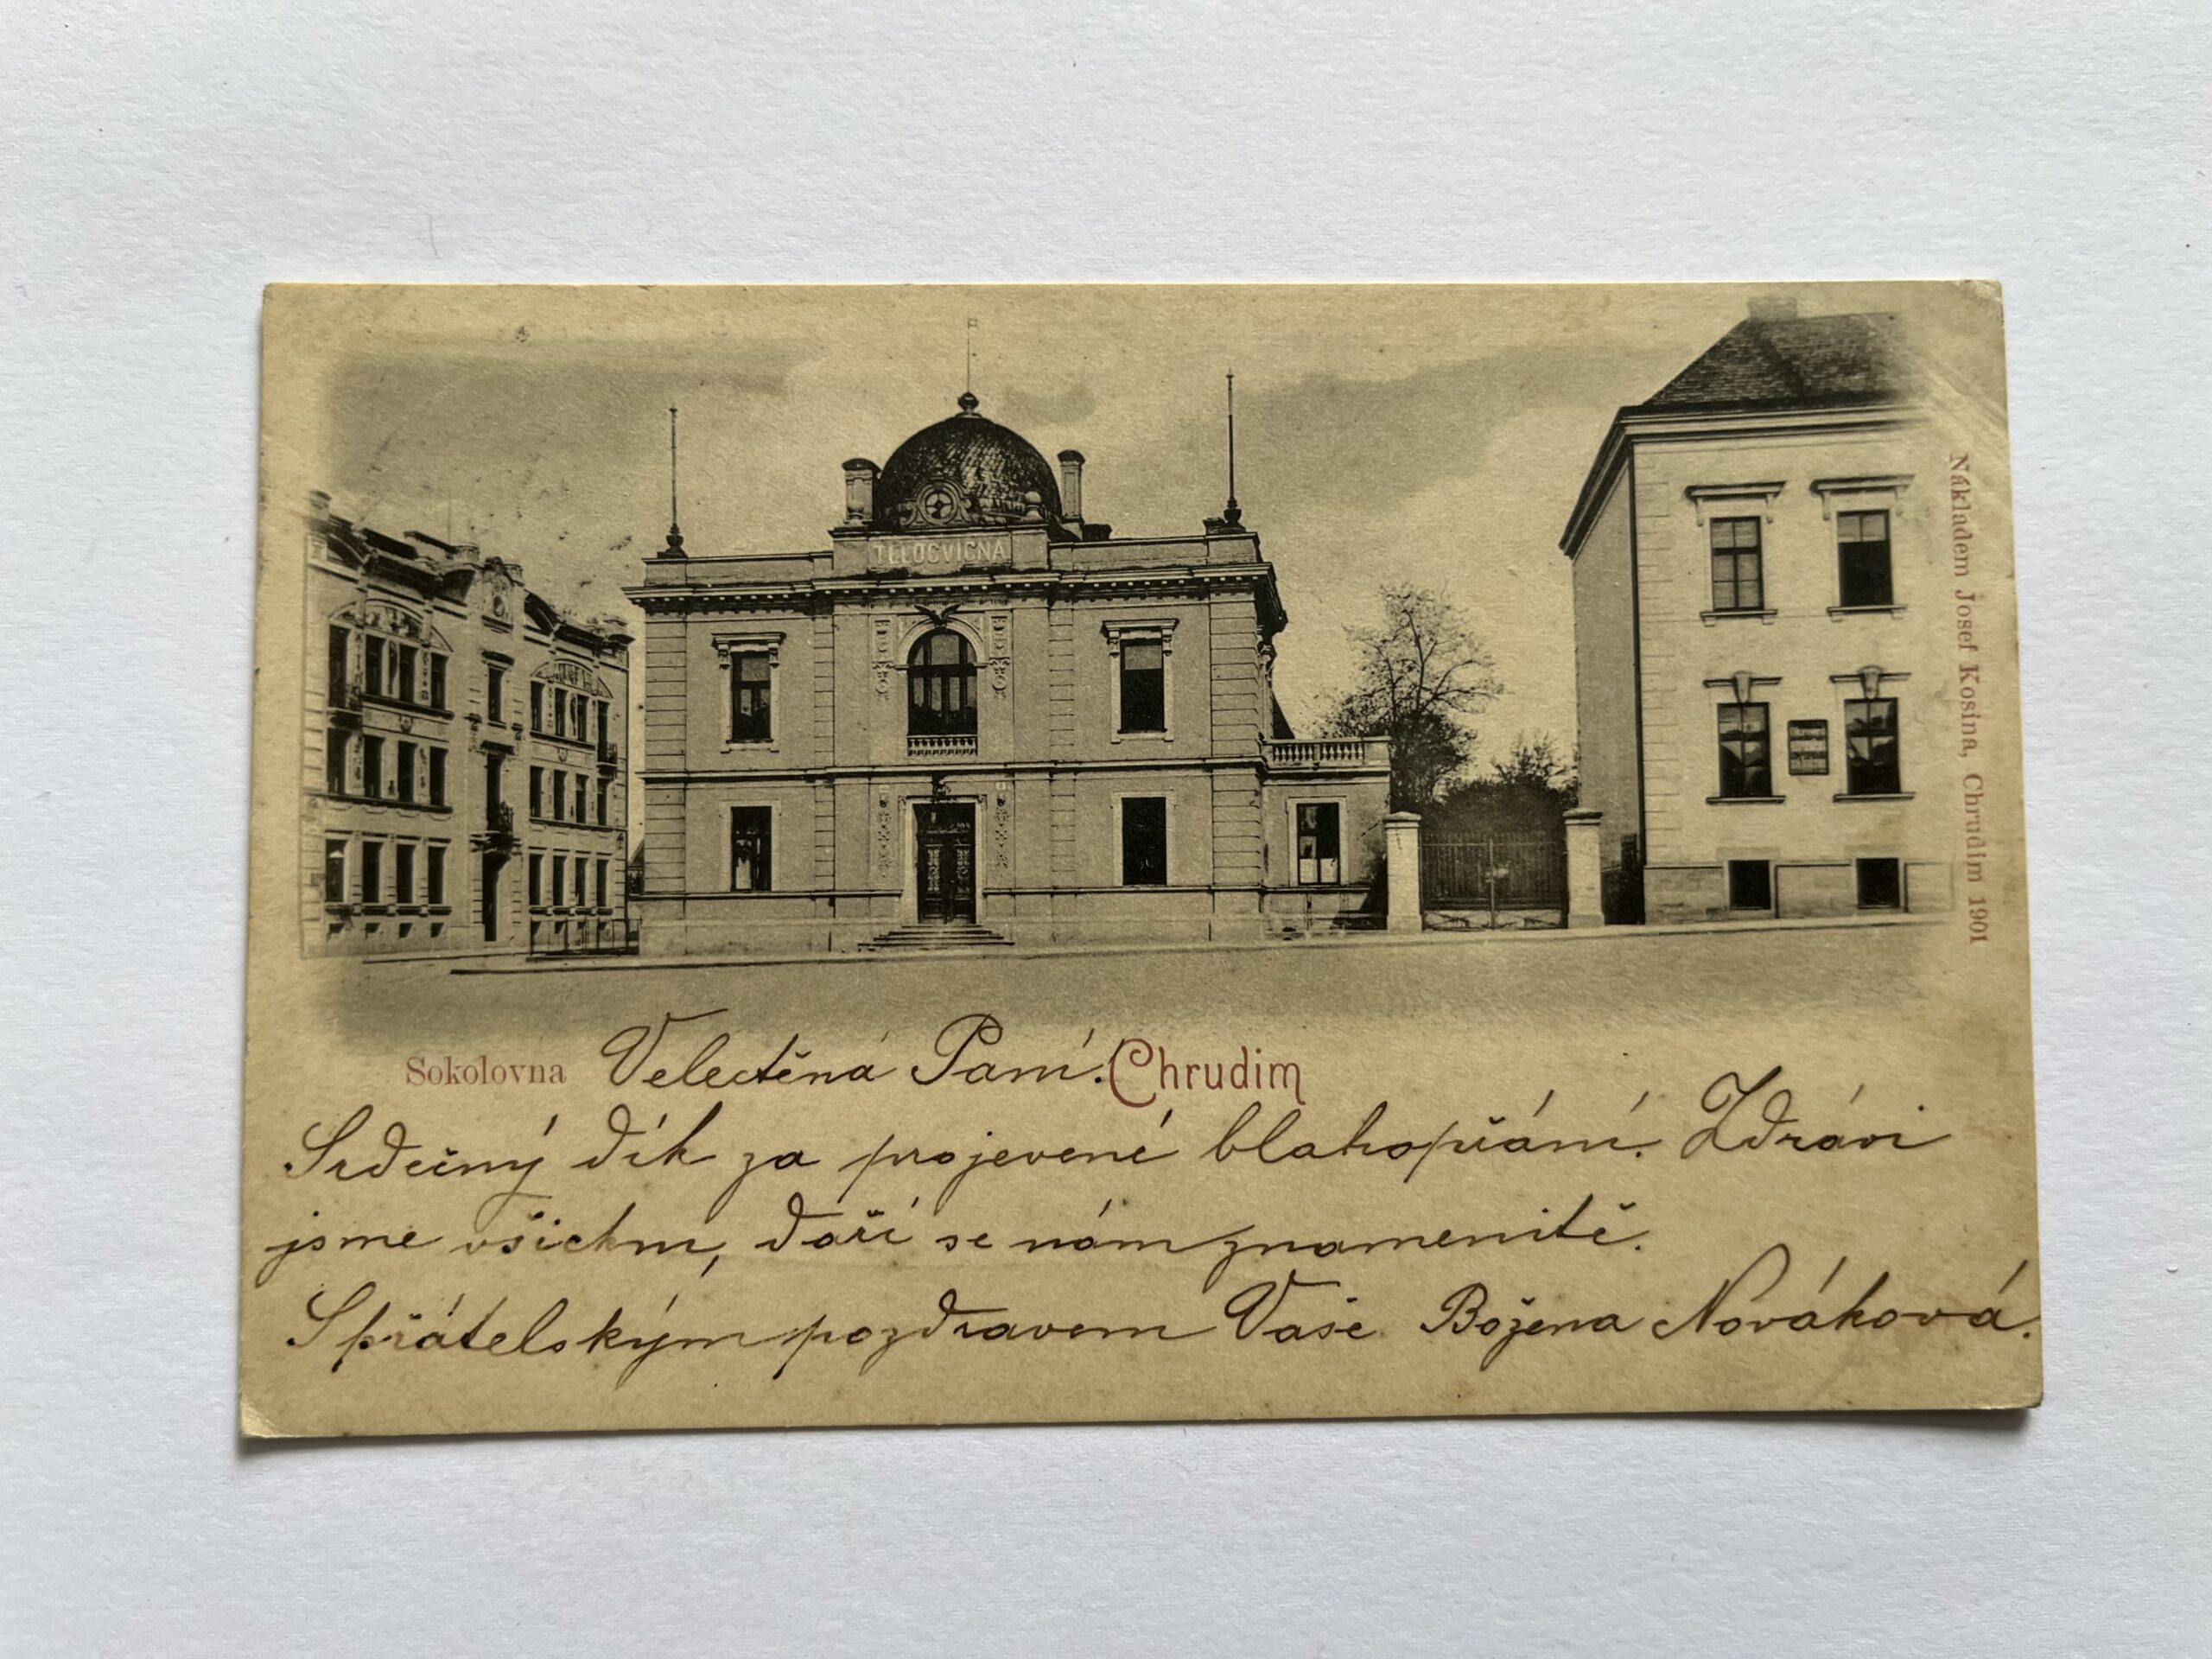 TĚLOCVIČNA
Nákladem Josef Kosina, Chrudim 1901
Sokolovna
Chrudim
Velectěná Paní!
Srdečný dík za projevené blahopřání. Zdrávi
jsme všichni, daří se nám znamenitě.
S přátelským pozdravem Vaše Božena Nováková.